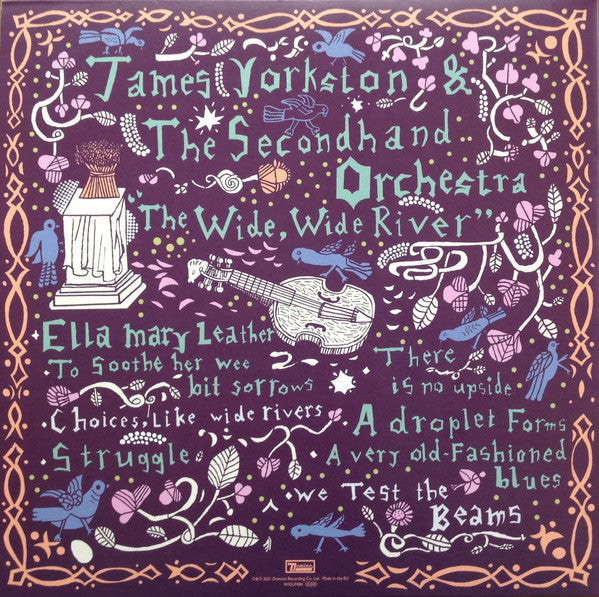 James Yorkston &
The Secondhand
Orchestra
"The Wide, Wide River"
Ella Mary Leather
To Soothe her wee
bit sorrows
Choices, Like wide rivers
Struggle
There
is no upside
A droplet Forms
A very old-Fashioned
blues
We Test the
Beams
Domino
℗&© 2021 Domino Recording Co. Ltd. Made in the EU
WIGLP484